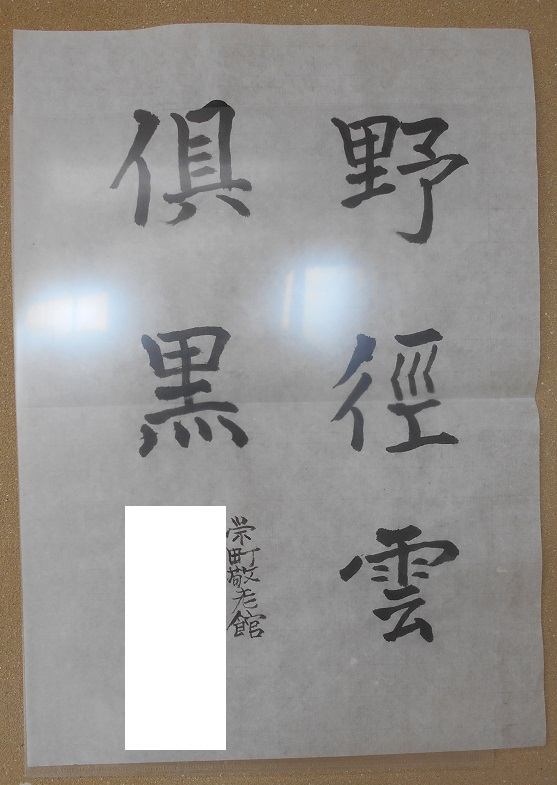 野徑雲
俱黒
栄町敬老館